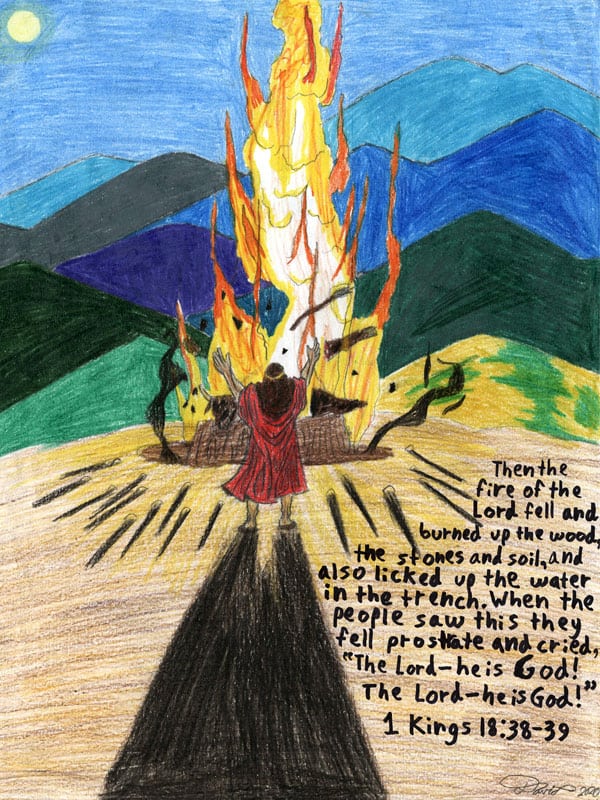 Then the
fire of the
Lord fell and
burned up the wood,
the stones and soil, and
also licked up the water
in the trench. When the
people saw this they
fell prostrate and cried,
"The Lord—he is God!
The Lord—he is God!"
1 Kings 18:38-39